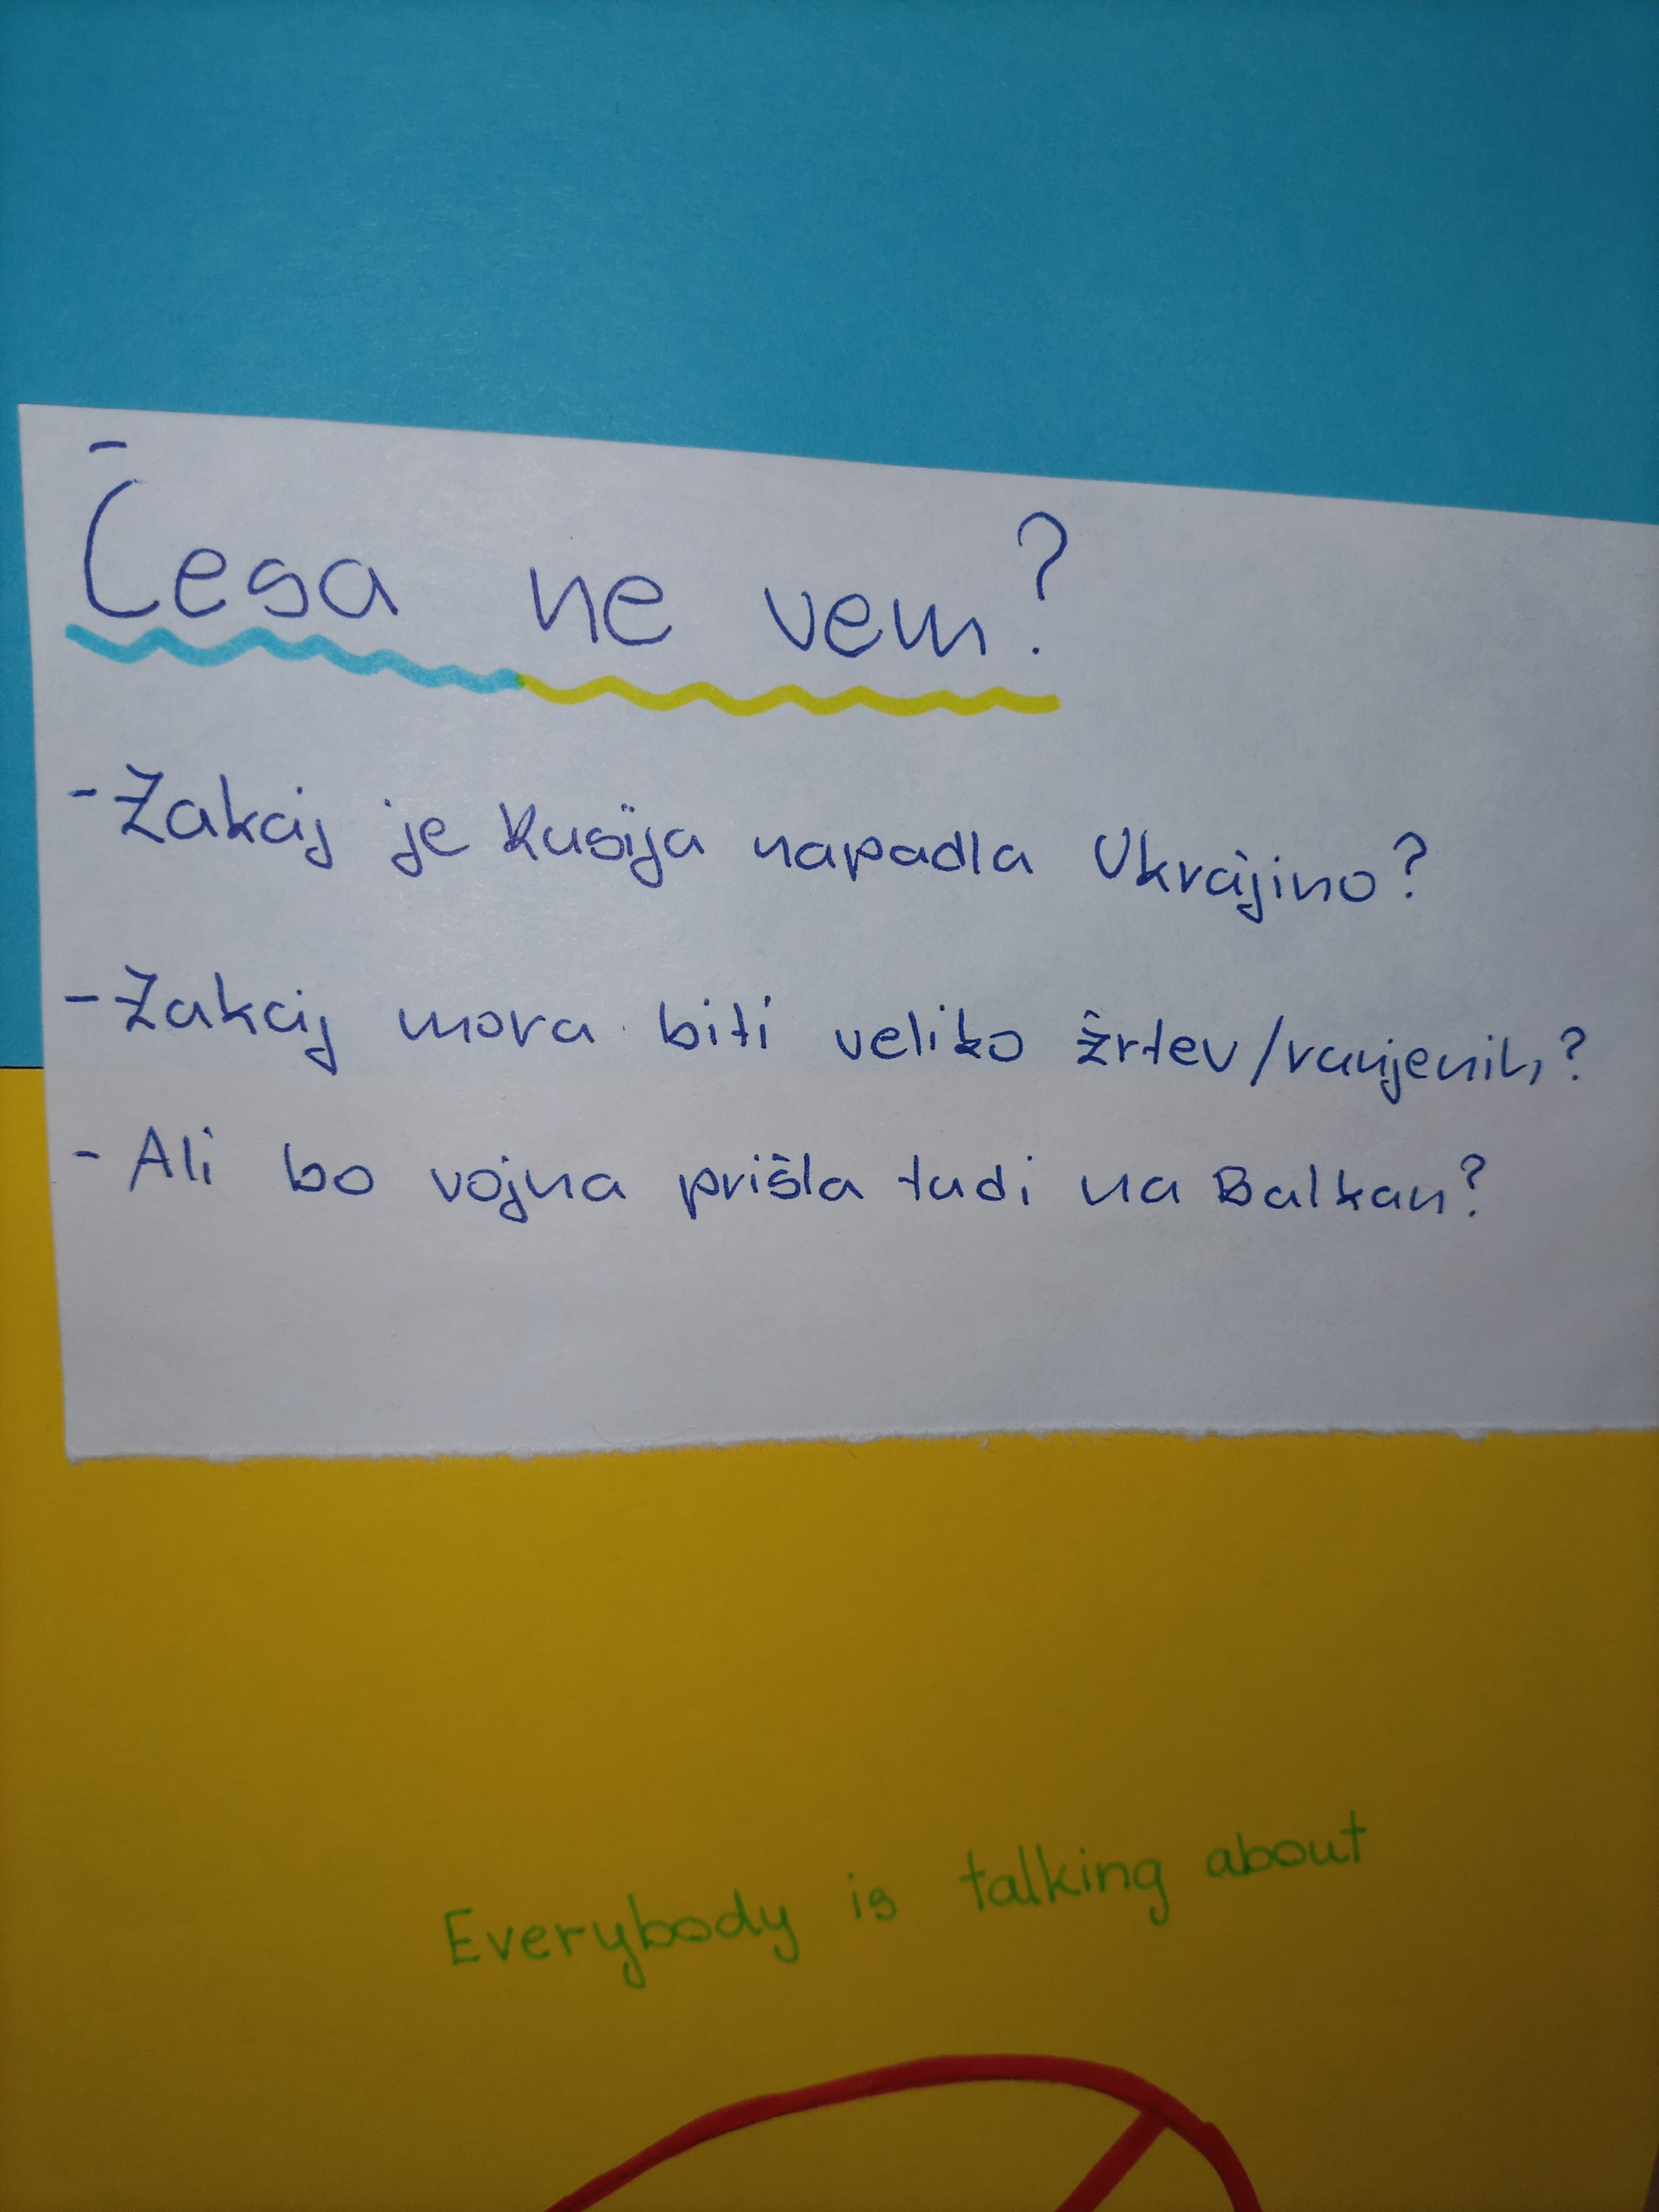 Česa ne vem?
- Zakaj je Rusija napadla Ukrajino?
- Zakaj mora biti veliko žrtev/ranjenih?
- Ali bo vojna prišla tudi na Balkan?
Everybody is talking about